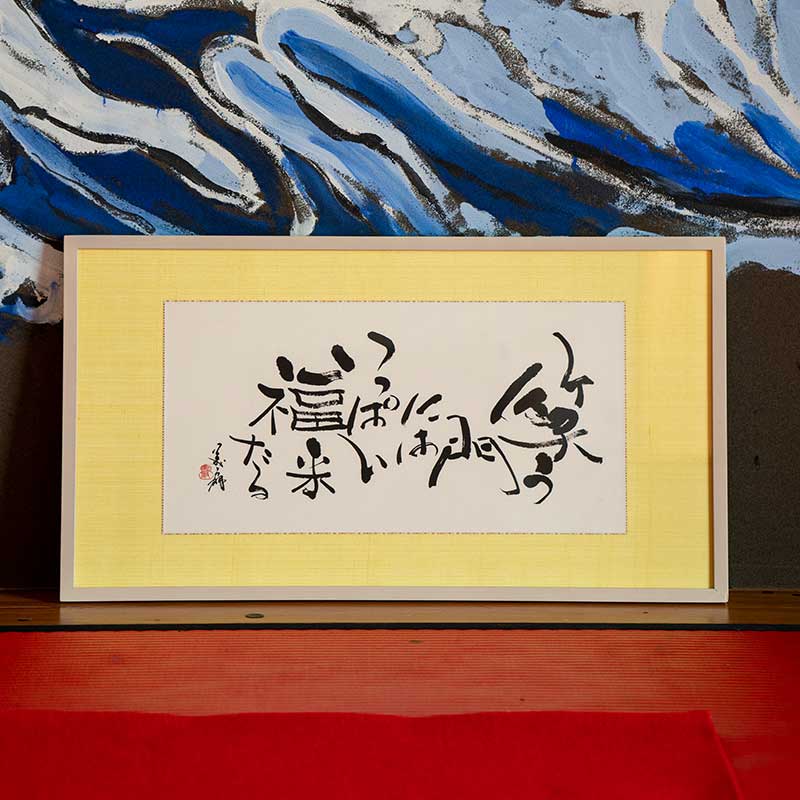 笑う
門
には
いっぱい
福来
たる